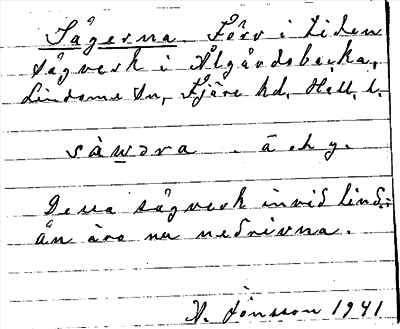 Sågerna. Förr i tiden
sågverk i Ålgårdsbacka,
Lindome sn, Fjäre hd, Hall. l.
sàwəra - ā ch g.
Dessa sågverk invid Lind.-
ån äro nu nedrivna.
A. Jönsson 1941